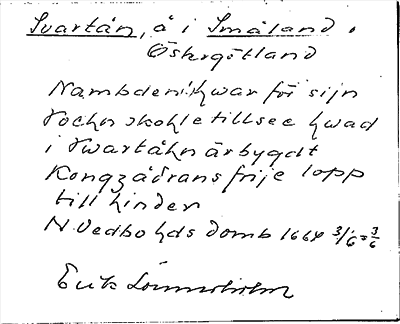 Svartån, å i Småland o
Östergötland
Nambden hwar för sijn
Sochn skohle tillsee hwad
i Swartåhn är bygdt
Kongzådrans frije lopp
till hinder
N. Vedbo hds domb 1664 3/6
Erik